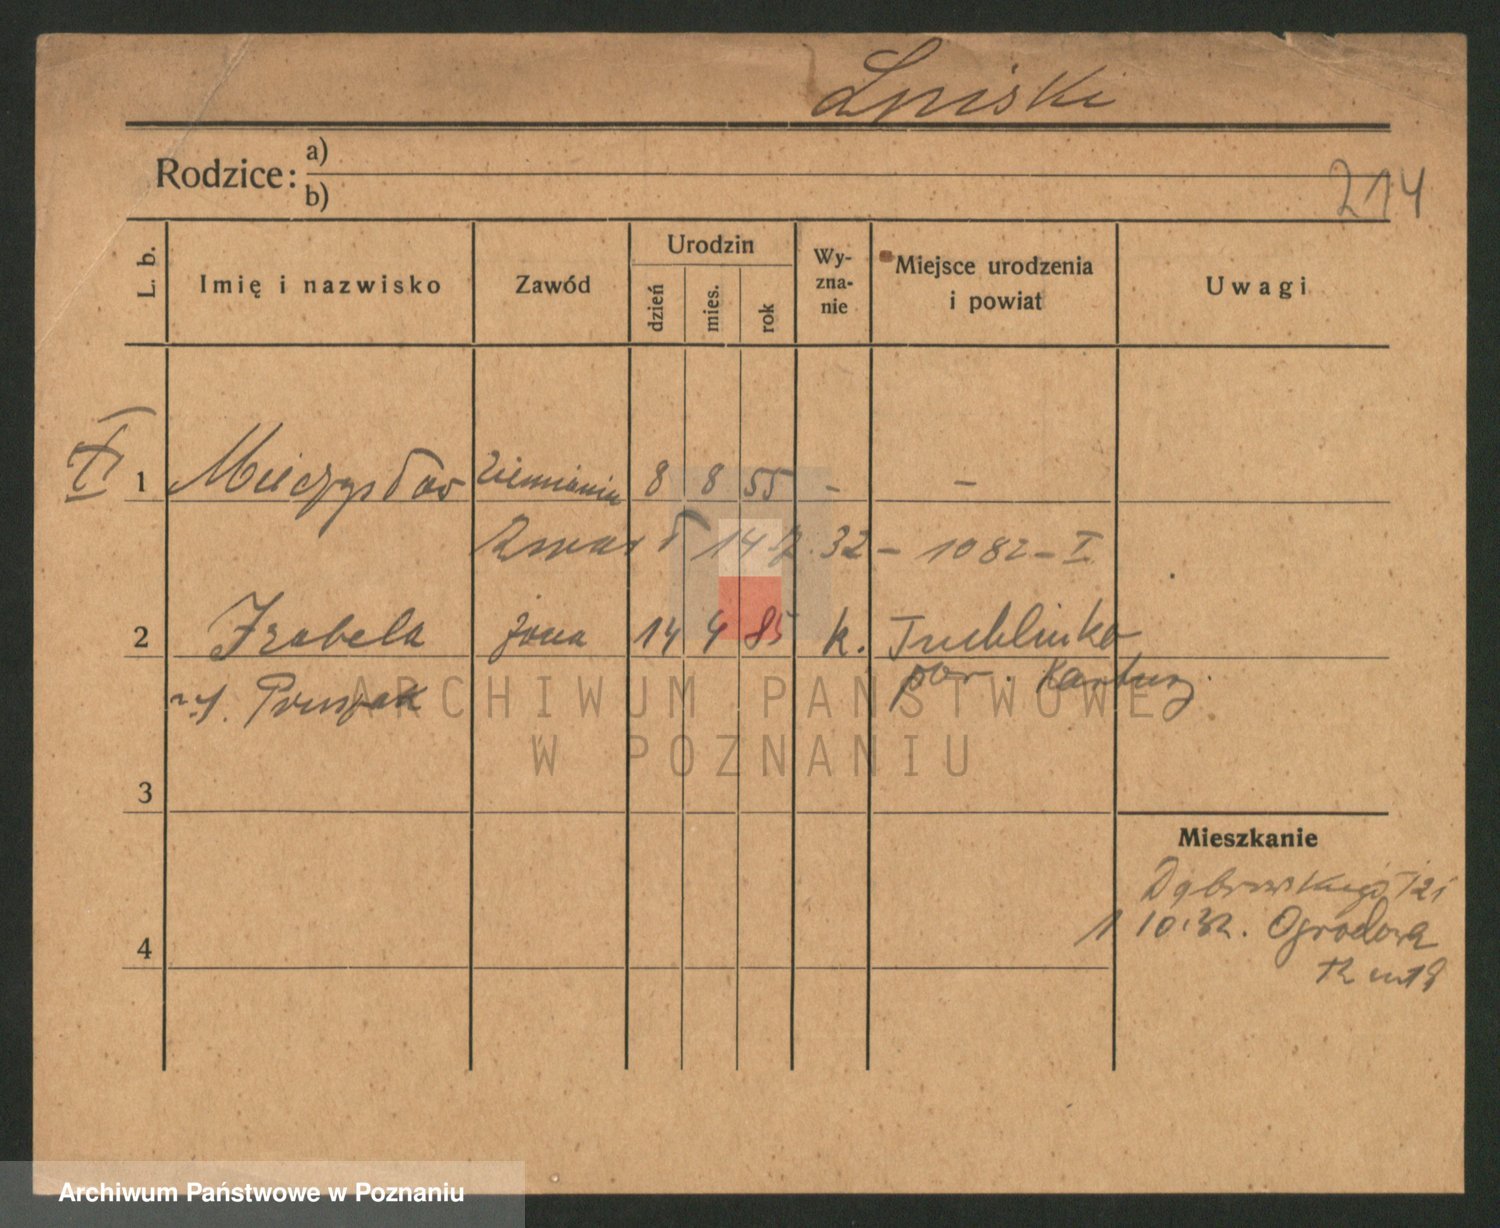 Lniski
Rodzice: a)
b)
214
L. b.
Imię i nazwisko
Zawód
Urodzin
dzień
mies.
rok
Wy-
zna-
nie
Miejsce urodzenia
i powiat
Uwagi
1 Mieczysław ziemianin 8 8 55 - -
Zmarł 14 2. 32 - 1082 - I
2 Izabela żona 14 4 85 k.
pow. Kartuzy.
ARCHIWUM PAŃSTWOWE
W POZNANIU
3
Mieszkanie
Dąbrowskiego
4
1 10.32. Ogrodowa
12 m 18
Archiwum Państwowe w Poznaniu